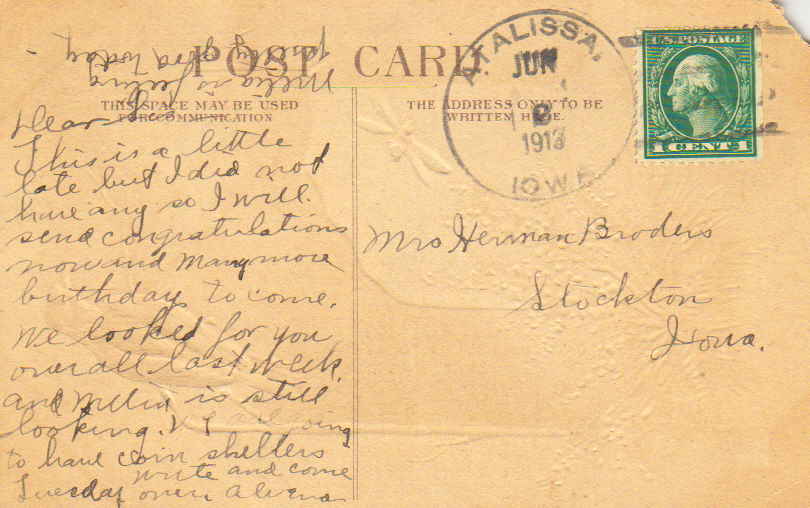 POST CARD.
THIS SPACE MAY BE USED
FOR COMMUNICATION
THE ADDRESS ONLY TO BE
WRITTEN HERE.
ATALISSA,
JUN
2
1913
IOWA
U.S. POSTAGE
1 CENT 1
Dear
This is a little
late but I did not
have any so I will
send congratulations
now and many more
birthdays to come.
We looked for you
over all last week
and Melia is still
looking. going
to have corn shellers
Tuesday
write and come
over Alvena
Melia is feeling
today
Mrs Herman Broders
Stockton
Iowa.